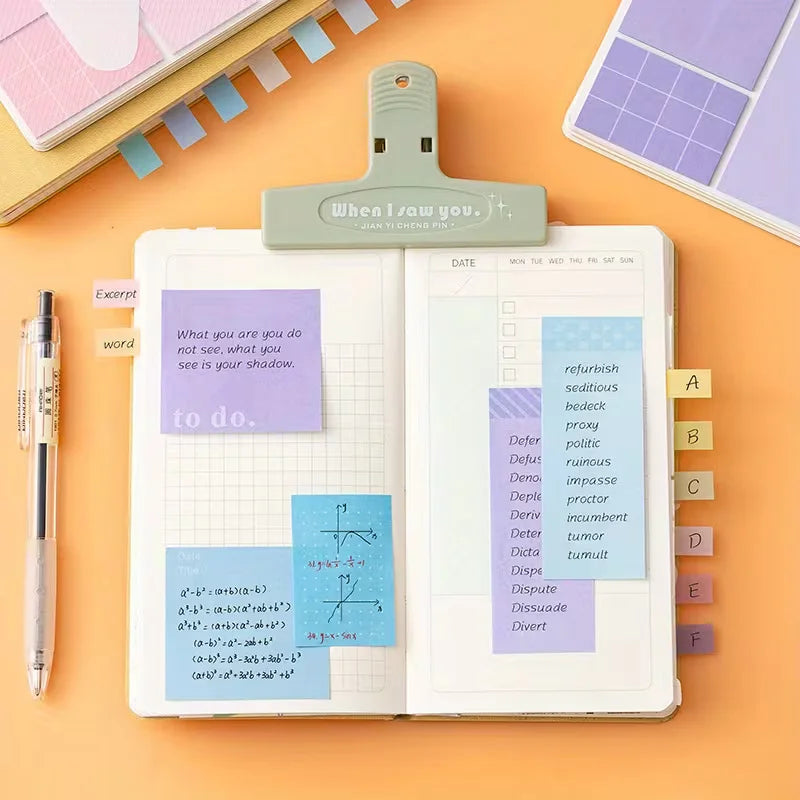 When I saw you.
JIAN YI CHENG PIN
Excerpt
word
What you are you do
not see, what you
see is your shadow.
to do.
Date
Title
a²-b²=(a+b)(a-b)
a³-b³=(a-b)(a²+ab+b²)
a³+b³=(a+b)(a²-ab+b²)
(a-b)²=a²-2ab+b²
(a-b)³=a³-3a²b+3ab²-b³
(a+b)³=a³+3a²b+3ab²+b³
y
x
y
x
y=x-sinx
DATE
MON TUE WED THU FRI SAT SUN
Defer
Dicta
Dispute
Dissuade
Divert
refurbish
seditious
bedeck
proxy
politic
ruinous
impasse
proctor
incumbent
tumor
tumult
A
B
C
D
E
F